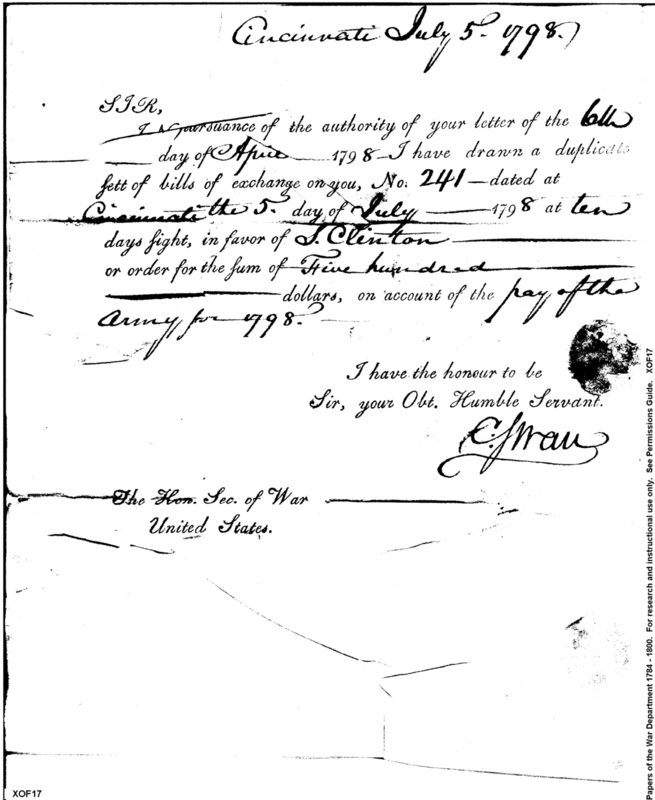 Cincinnati July 5. 1798.
SIR,
In pursuance of the authority of your letter of the 6th
day of April 1798 I have drawn a duplicate
sett of bills of exchange on you, No. 241 dated at
Cincinnati the 5. day of July 1798 at ten
days sight, in favor of S. Clinton
or order for the sum of Five hundred
dollars, on account of the pay of the
Army for 1798.
I have the honour to be
Sir, your Obt. Humble Servant.
C. Swan
The Hon. Sec. of War
United States.
Papers of the War Department 1784 - 1800. For research and instructional use only. See Permissions Guide. XOF17
XOF17